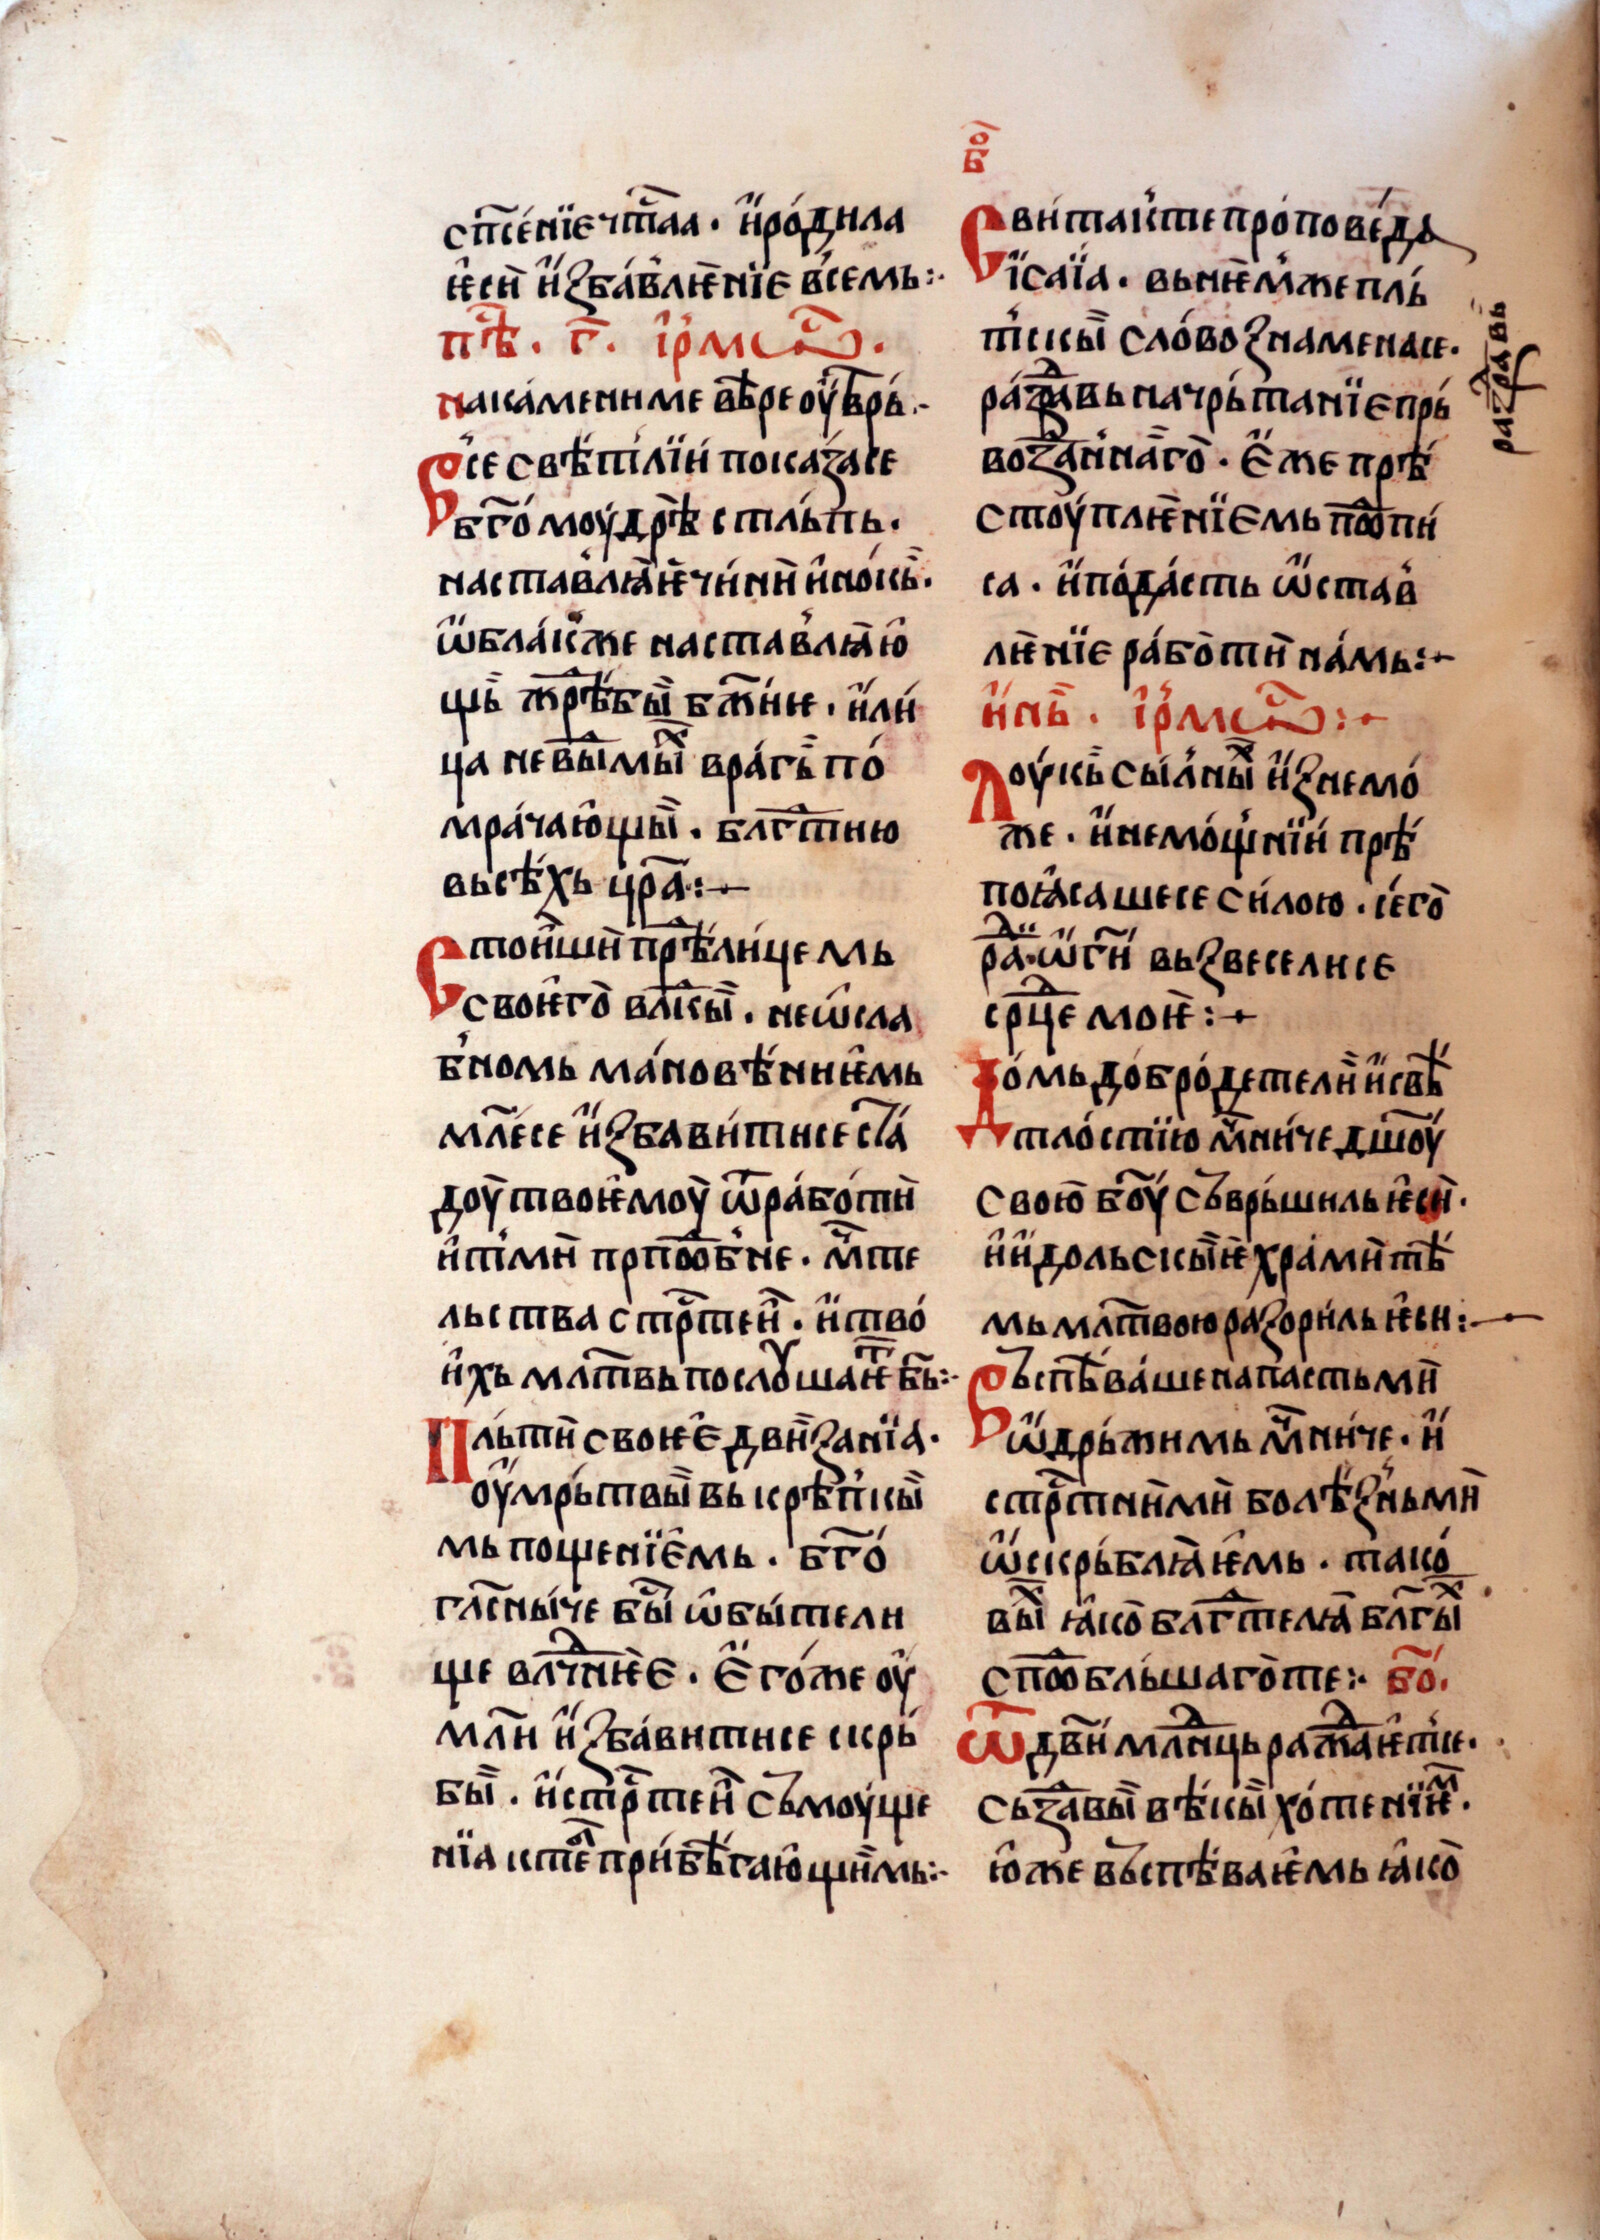 спсе́нїе чтⷭ҇аа · и҆ ро́дила
ѥ҆сѝ и҆ꙁба́влѥнїе в҆семь :·
пⷭ҇ѣ · г҃ · і҆рмѡⷭ҇ ·
на ка́мени ме вѣ́ре оу҆твр҄ь́ ·
В҆се свѣ́тилїи пока́ꙁа се
бг҃о́моу́дрѣ стль́пь ·
наставлꙗ́ѥ чи́ни и҆нокь̀ ·
ѡ҆бла́к҆ же наставлꙗ́ю҆
щь̀ жрѣ́бы̀ бж҃їиѥ · и҆ ли́
ца невⷣимыⷯ враⷢгь по́
мрача́ю҆щы̀ · блгⷣтию
вьсѣ́хь цр҃а :·
Стои҆шѝ прѣⷣ ли́цемь
своѥго̀ влⷣкы̀ · не ѡ҆сла
б҆номь ма́новѣ́нниѥмь
мл҃е́ се и҆ꙁбави́ти се ста́
доу̀ твоѥмоу̀ ѿ ра́бо́тѝ
и҆ тімѝ прпⷣоб҆не · мⷱ҇те
льства стрⷭ҇теи̑ · и҆ тво́
и҆хь млт҃вь послꙋшаѥⷮ б҃ь :·
Пль́тѝ своѥе҆ дви́ꙁанїа ·
оу҆мрь́твы̀ вь крѣ́п҆кы̀
мь поще́нїе҆мь · бг҃о́
глⷭ҇ны́че бы̀ⷭ҇ ѡ҆би́тели
ще влⷣчнѥе · Е҆го́же оу҆
мл҃и и҆ꙁба́вити се скрь́
бы̀ · и҆ стрⷭ҇теи̑ сь̀моу́ще
нїа к тебⷠѣ при́бѣ́гаю҆щи̑мь :·
бо҃
Еви́та и҆ те про́повѣ́да
Ї҆са́їа · вь нѥм҆же пль́
т҆скы̀ сло́во ꙁнамена се ·
ра́ꙁⷣравь начрь́танїе прь́
воꙁⷣанна́го̀ · Е҆же прѣ́
стоу́плѥнїемь пѡⷣпи́
са · и҆ по́да́сть ѡ҆став
лѥ́нїе ра́бо̀ти на́мь :·
и҆нь̀ · і҆рмѡⷭ҇ :·
Лоу́кь̀ сы́лныⷯ и҆ꙁнемо́
же · и҆ немо́щ҆нїи прѣ́
поꙗ́саше се си́лою · сего̀
раⷣи · ѡ҆ г҃и вьꙁвесели се
срⷣце моѥ :·
До́мь до́бро́детели̑ и҆ свѣ
тло́стїю мⷱ҇ни́че дш҃оу́
свою̀ бо҃у́ сь̀врь́шиль ѥ҆сѝ ·
и҆ и҆дольскы̀ѥ хра́ми тѣ́
мь млт҃вою раꙁори́ль ѥ҆си :·
Вь̀спѣва́ше напастьмѝ
ѡ҆дрь́жимь мⷱ҇ни́че · и҆
стрⷭ҇тни́мѝ болѣ́ꙁ҆ньмѝ
ѡ҆скрь́блꙗѥ҆мь · тако́
выⷯ ꙗ҆ко̀ блгⷣтелꙗ̀ блг҃ыⷯ
спⷣобль́шаго̀ те :· бо҃ ·
Ѿ дв҃и млⷣнць ражⷣаѥт се ·
сьꙁⷣавы̀ вѣ́кы̀ хо́тенїѥⷨ ·
ю҆же вь̀спѣваѥ҆мь ꙗ҆ко̀
раꙁⷣравь